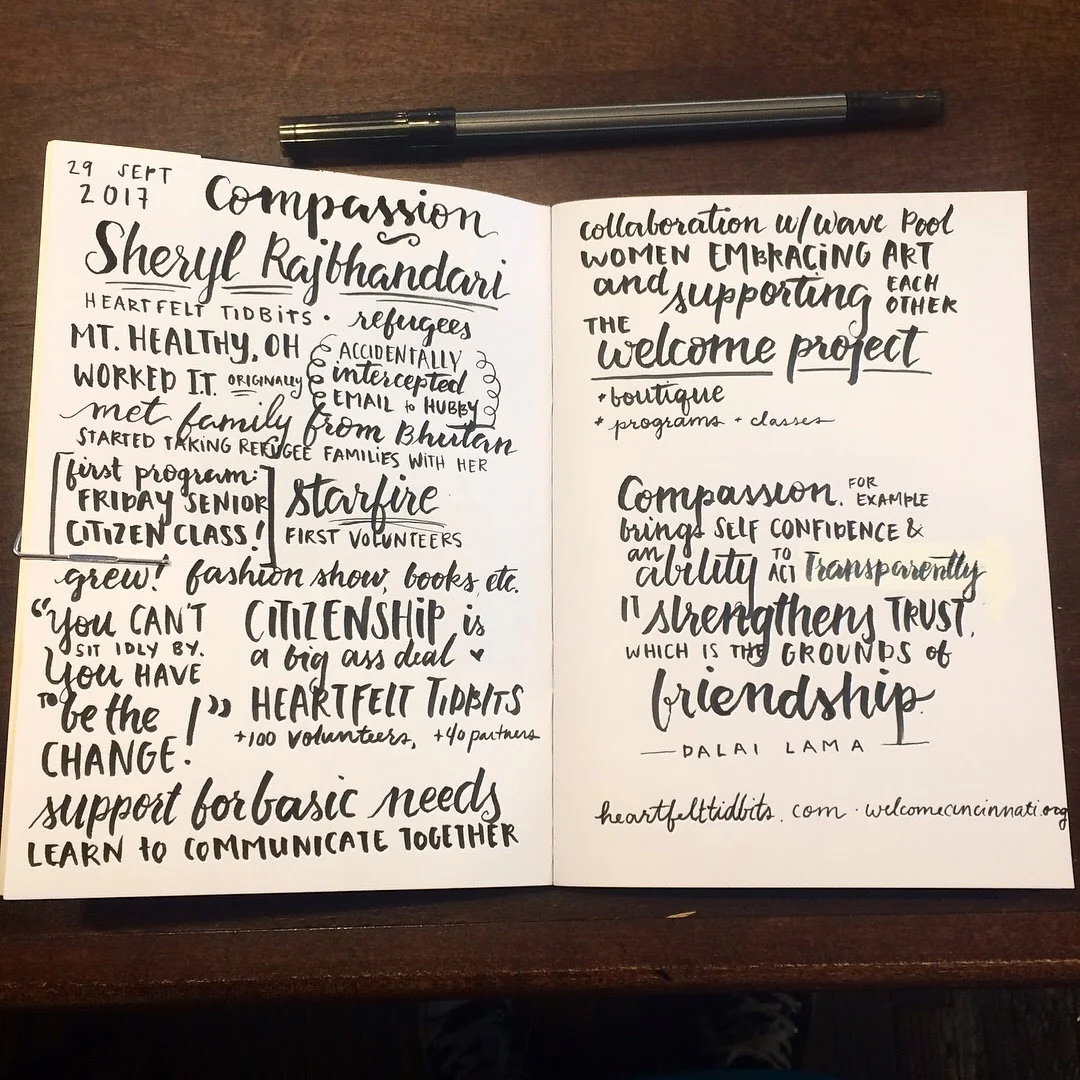 29 SEPT
2017
Compassion
Sheryl Rajbhandari
HEARTFELT TIDBITS • refugees
MT. HEALTHY, OH
WORKED I.T. ORIGINALLY
ACCIDENTALLY
intercepted
EMAIL to HUBBY
met family from Bhutan
STARTED TAKING REFUGEE FAMILIES WITH HER
[first program:
FRIDAY SENIOR
CITIZEN CLASS!]
starfire
FIRST VOLUNTEERS
grew! fashion show, books, etc.
"You CAN'T
SIT IDLY BY.
You HAVE
TO be the
CHANGE!"
CITIZENSHIP is
a big ass deal ♥
HEARTFELT TIDBITS
+100 volunteers, +40 partners
support for basic needs
LEARN to COMMUNICATE TOGETHER
collaboration w/Wave Pool
WOMEN EMBRACING ART
and supporting EACH OTHER
THE
welcome project
* boutique
* programs + classes
Compassion. FOR EXAMPLE
brings SELF CONFIDENCE &
an ability TO ACT Transparently
IT strengthens TRUST,
WHICH IS THE GROUNDS of
friendship.
— DALAI LAMA —
heartfelttidbits.com · welcomecincinnati.org